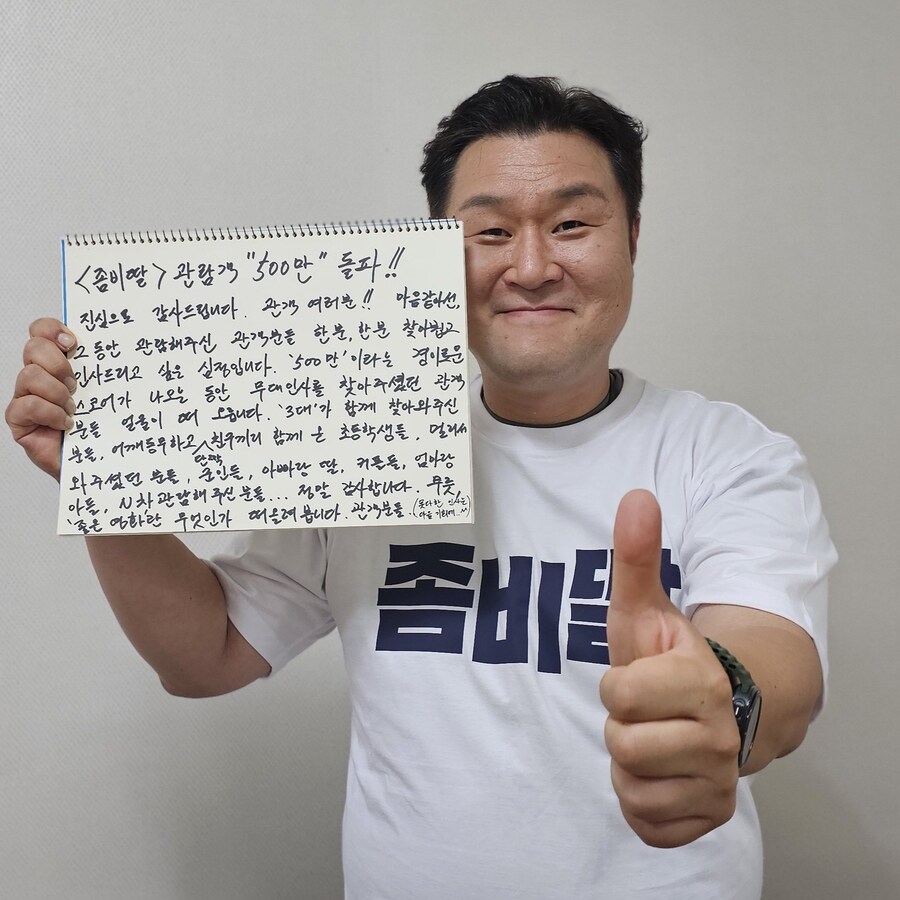 <좀비딸> 관람객 "500만" 돌파!!
진심으로 감사드립니다. 관객 여러분!! 마음같아선,
그동안 관람해주신 관객분들 한분,한분 찾아뵙고
인사드리고 싶은 심정입니다. '500만'이라는 경이로운
스코어가 나오는 동안 무대인사를 찾아주셨던 관객
분들 얼굴이 떠 오릅니다. '3대'가 함께 찾아와주신
분들, 어깨동무하고 단짝 친구끼리 함께 온 초등학생들, 멀리서
와주셨던 분들, 군인들, 아빠랑 딸, 커플들, 엄마랑
아들, N차관람해주신 분들... 정말 감사합니다. 무릇,
'좋은 영화란 무엇인가 떠올려봅니다. 관객분들. (못다한 인사는
다음 기회에..^^)
좀비딸